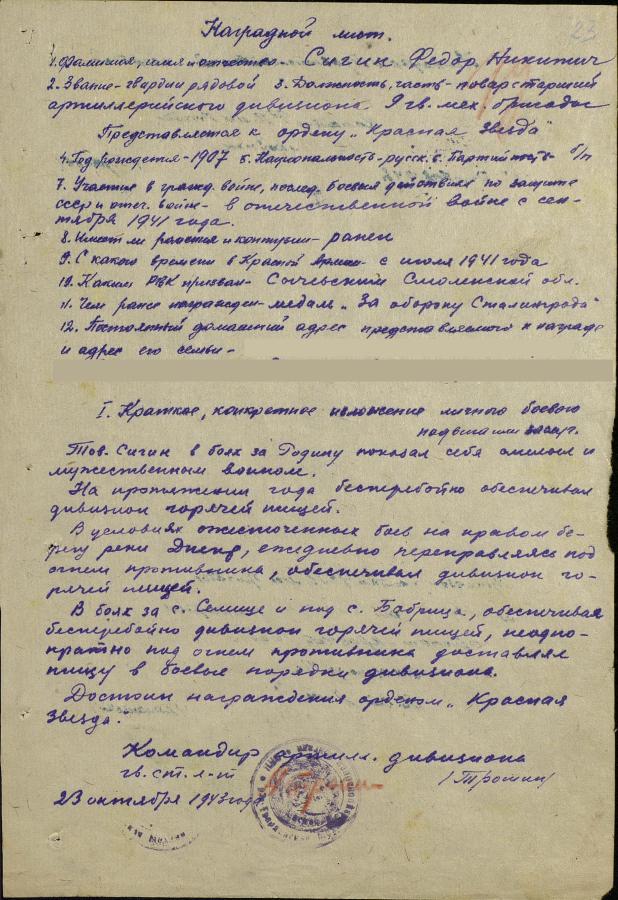 23
Наградной лист.
1. Фамилия, имя и отчество - Сигин Федор Никитич
2. Звание - гвардии рядовой 3. Должность, часть - повар старший
артиллерийского дивизиона 9 гв. мех. бригады
Представляется к ордену „Красная Звезда"
4. Год рождения - 1907 5. Национальность - русск. 6. Партийность - б/п
7. Участие в гражд. войне, послед. боевых действиях по защите
СССР и отеч. войне - в отечественной войне с сен-
тября 1941 года.
8. Имеет ли ранения и контузии - ранен
9. С какого времени в Красной Армии - с июля 1941 года
10. Каким РВК призван - Смоленской обл.
11. Чем ранее награжден - медаль „За оборону Сталинграда"
12. Постоянный домашний адрес представляемого к награде
и адрес его семьи -
I. Краткое, конкретное изложение личного боевого
подвига или заслуг.
Тов. Сигин в боях за Родину показал себя смелым и
мужественным воином.
На протяжении года бесперебойно обеспечивал
дивизион горячей пищей.
В условиях ожесточенных боев на правом бе-
регу реки Днепр, ежедневно переправляясь под
огнем противника, обеспечивал дивизион го-
рячей пищей.
В боях за с. Селище и под с. Бабрица, обеспечивая
бесперебойно дивизион горячей пищей, неодно-
кратно под огнем противника доставлял
пищу в боевые порядки дивизиона.
Достоин награждения орденом „Красная
Звезда".
Командир артилл. дивизиона
гв. ст. л-т (Тромин)
23 октября 1943 год